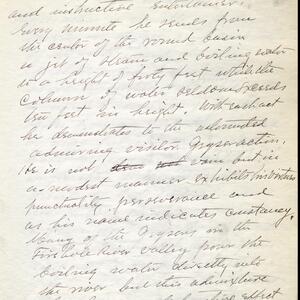 and instructive entertainer.
Every minute he sends from
the center of the round basin
a jet of steam and boiling water
to a height of forty feet until the
column of water seldom exceeds
ten feet in height. With each act
he demonstrates to the
admiring visitor Geyser action.
He is not vain but in
a modest manner exhibits his virtues
punctuality perseverance and
as his name indicates constancy.
Many of the Geysers in the
Firehole River Valley pour the
boiling water directly into
the river but this admixture